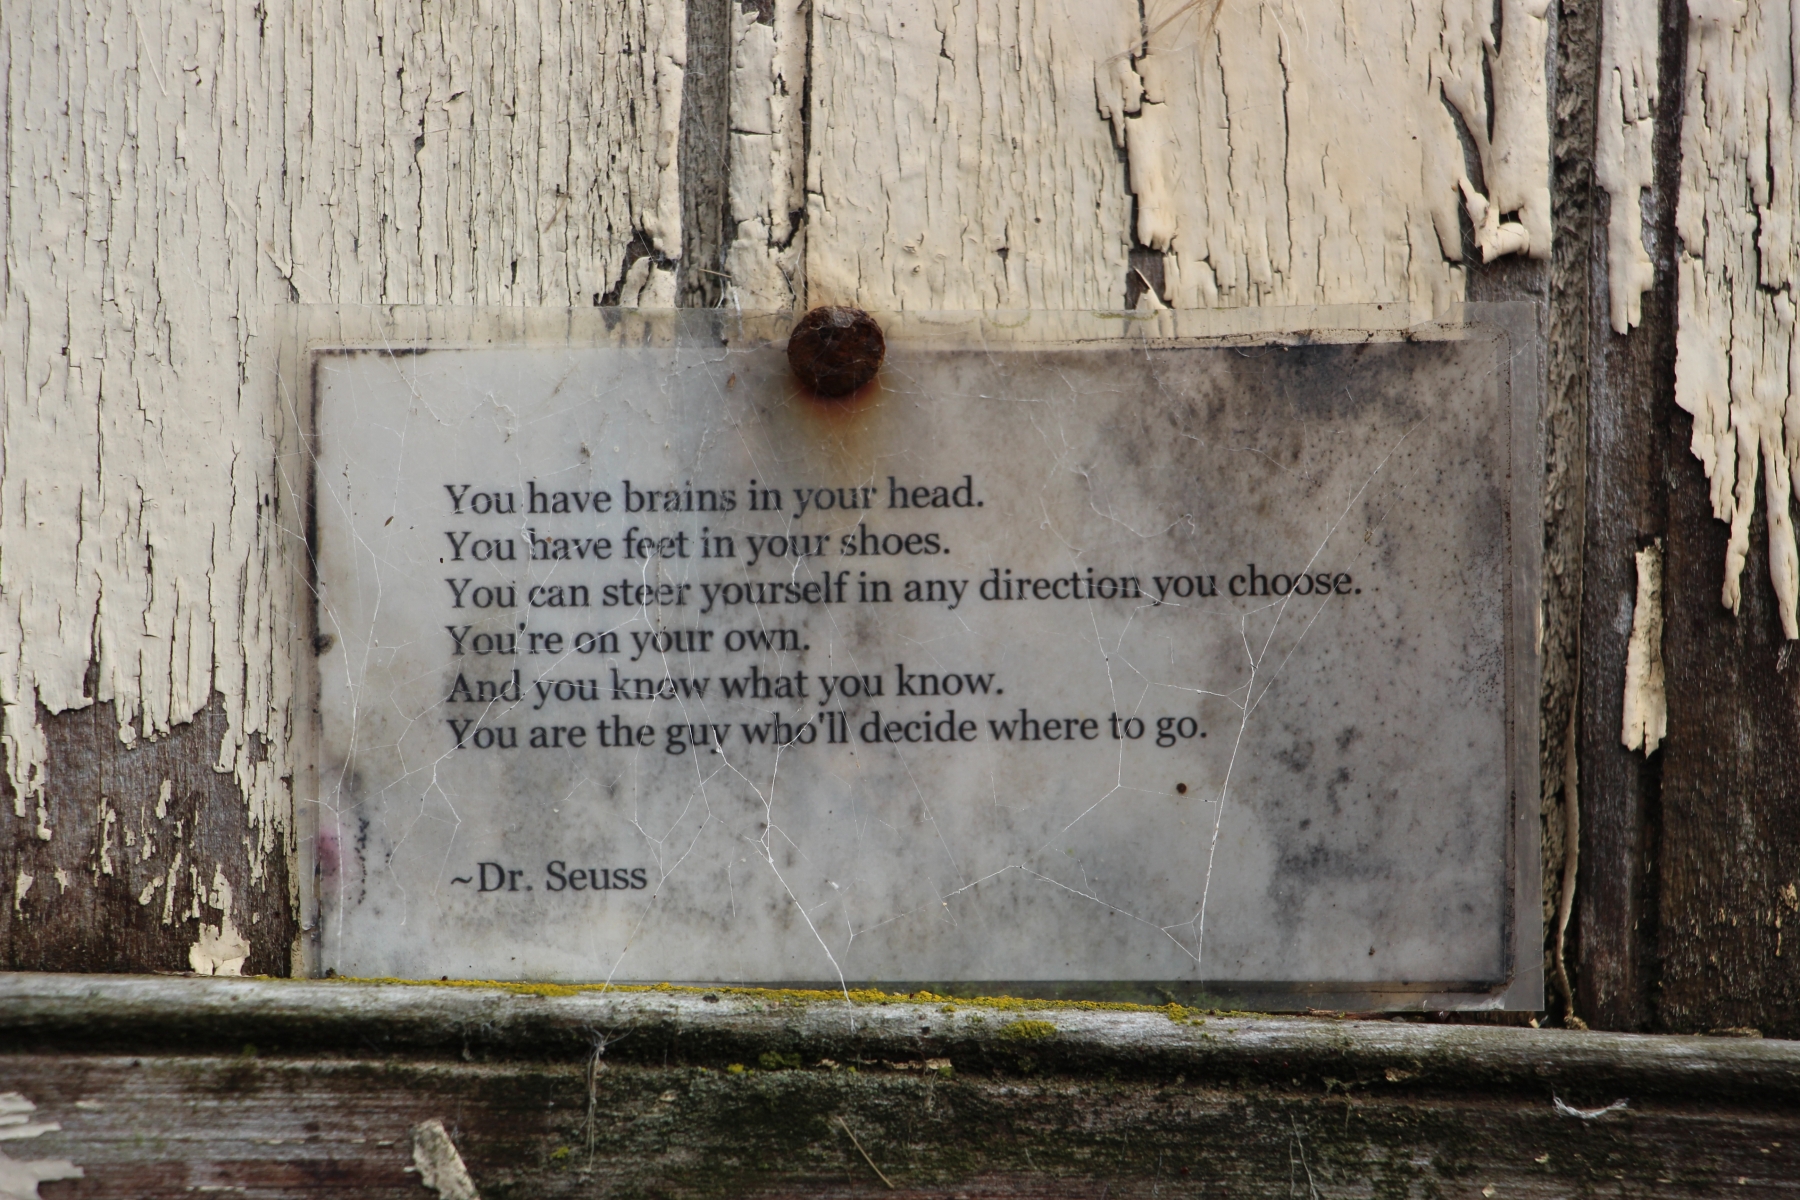 You have brains in your head.
You have feet in your shoes.
You can steer yourself in any direction you choose.
You're on your own.
And you know what you know.
You are the guy who'll decide where to go.
~Dr. Seuss